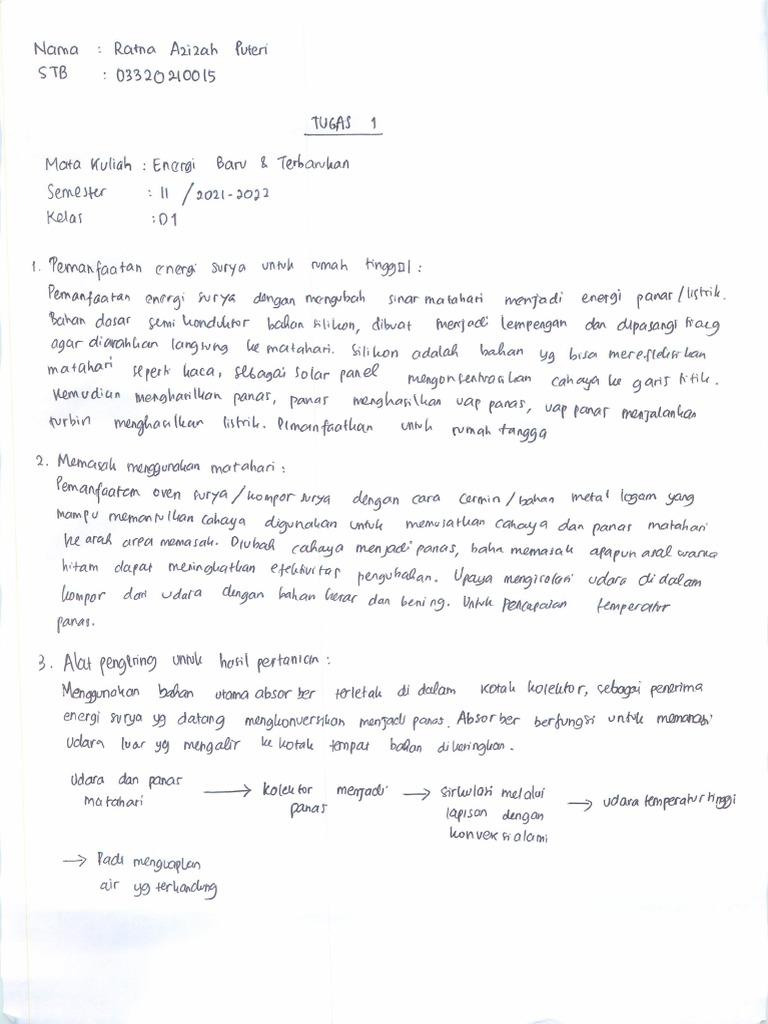 Nama : Ratna Azizah Puteri
STB : 03320210015
TUGAS 1
Mata Kuliah : Energi Baru & Terbarukan
Semester : II / 2021-2022
Kelas : D1
1. Pemanfaatan energi surya untuk rumah tinggal :
Pemanfaatan energi surya dengan mengubah sinar matahari menjadi energi panas/listrik.
Bahan dasar semi konduktor bahan silikon, dibuat menjadi lempengan dan dipasangi
agar diarahkan langsung ke matahari. Silikon adalah bahan yg bisa merefleksikan
matahari seperti kaca, sebagai solar panel mengonsentrasikan cahaya ke garis titik.
Kemudian menghasilkan panas, panas menghasilkan uap panas, uap panas menjalankan
turbin menghasilkan listrik. Dimanfaatkan untuk rumah tangga
2. Memasak menggunakan matahari :
Pemanfaatan oven surya/kompor surya dengan cara cermin/bahan metal logam yang
mampu memantulkan cahaya digunakan untuk memusatkan cahaya dan panas matahari
ke arah area memasak. Diubah cahaya menjadi panas, bahn memasak apapun asal warna
hitam dapat meningkatkan efektivitas pengubahan. Upaya mengisolasi udara di dalam
kompor dari udara dengan bahan keras dan bening. Untuk pencapaian temperatur
panas.
3. Alat pengering untuk hasil pertanian :
Menggunakan bahan utama absorber terletak di dalam kotak kolektor, sebagai penerima
energi surya yg datang mengkonversikan menjadi panas. Absorber berfungsi untuk memanasi
udara luar yg mengalir ke kotak tempat bahan dikeringkan.
Udara dan panas matahari → kolektor menjadi panas → sirkulasi melalui lapisan dengan konveksi alami → udara temperatur tinggi
→ Padi menguapkan
air yg terkandung